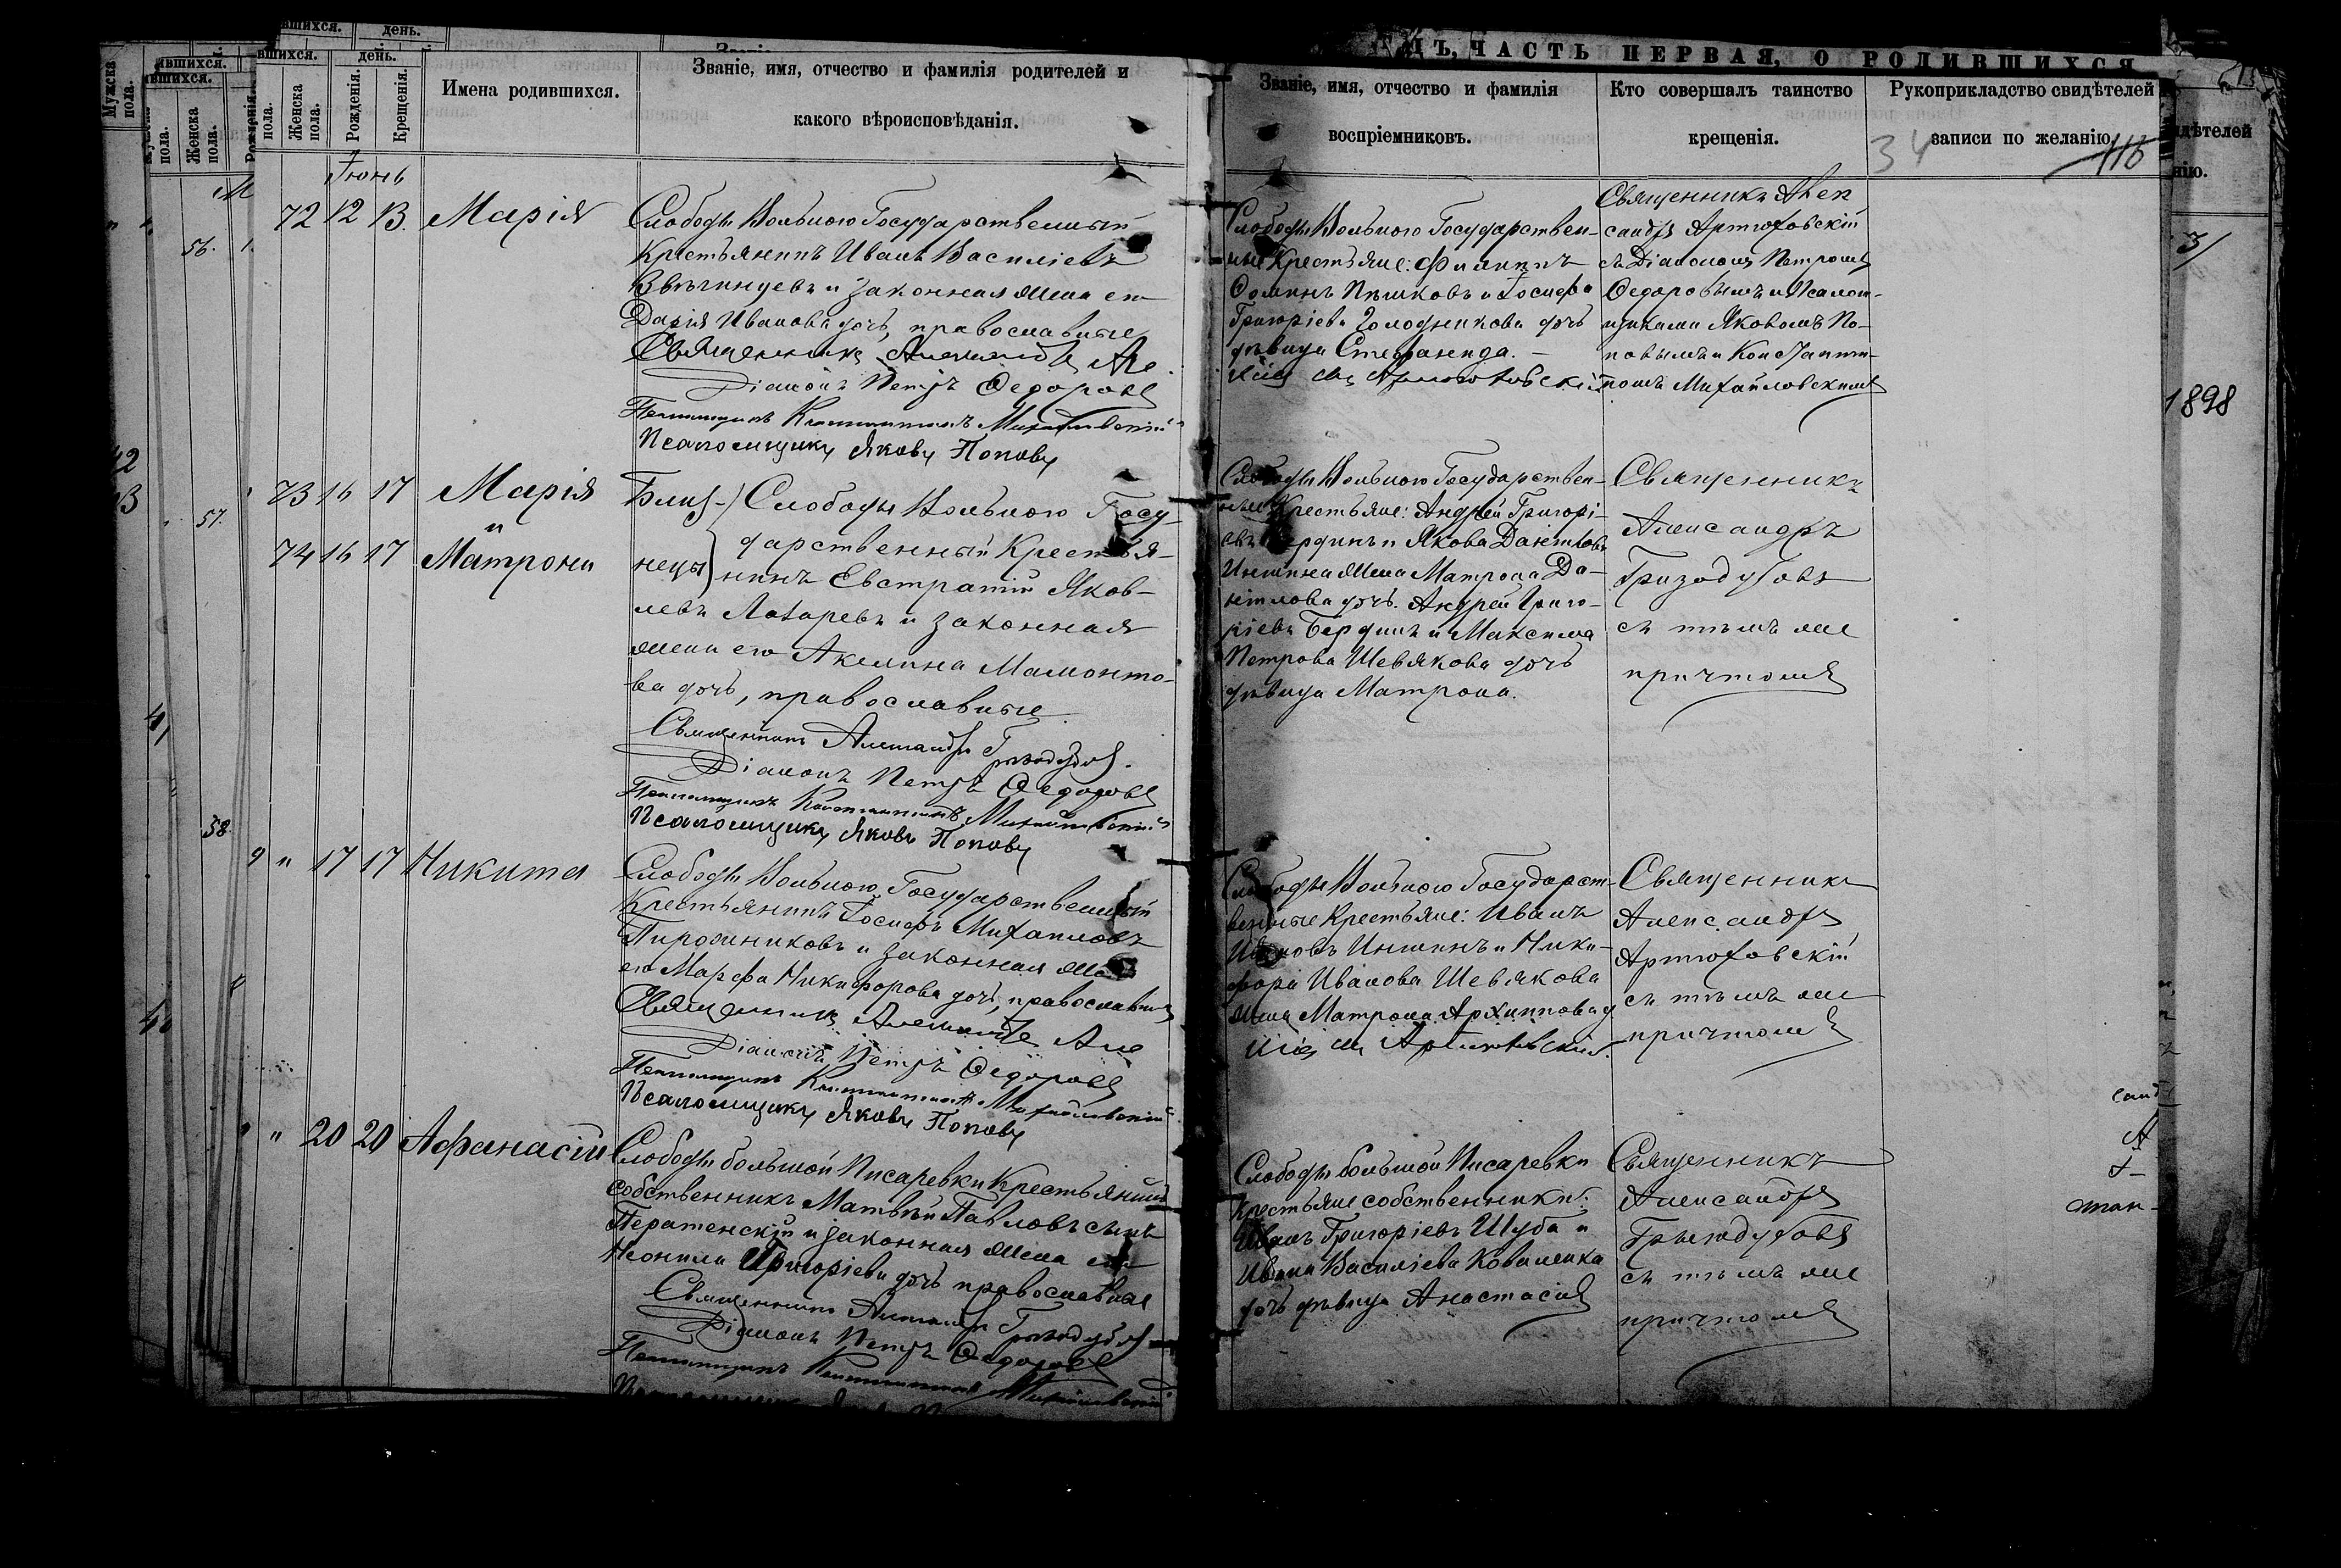 Ъ, ЧАСТЬ ПЕРВАЯ, О РОДИВШИХСЯ
вшихся.
день.
Мужска пола.
Женска пола.
Рожденія.
Крещенія.
Имена родившихся.
Званіе, имя, отчество и фамилія родителей и
какого вѣроисповѣданія.
Званіе, имя, отчество и фамилія
воспріемниковъ.
Кто совершалъ таинство
крещенія.
Рукоприкладство свидѣтелей
записи по желанію.
34
116
Іюнь
72 12 13. Марія
Слободы Вольного Государственный
Крестьянинъ Иванъ Василіевъ
и законная жена его
Дарія Иванова дочь, православные
Священникъ Александръ Ар
Діаконъ Петръ Федоровъ
Псаломщикъ Константинъ Михайловскій
Псаломщикъ Яковъ Поповъ
Слободы Вольного Государствен-
ные Крестьяне: Филиппъ
Фоминъ Пѣшковъ и Іосифа
Григоріева Голодникова дочь
дѣвица Стефанида.
Артюховскій
Священникъ Алек
сандръ Артюховскій
съ Діакономъ Петромъ
Федоровымъ и Псалом-
щиками Яковомъ По-
повымъ и Константи-
номъ Михайловскимъ
73 16 17 Марія
и
74 16 17 Матрона
Близ-) Слободы Вольного Госу-
дарственный Крестья-
нецы) нинъ Евстратій Яков-
левъ Лазаревъ и законная
жена его Акилина Мамонто-
ва дочь, православные
Священникъ Александръ Гризодубовъ.
Діаконъ Петръ Федоровъ
Псаломщикъ Константинъ Михайловскій
Псаломщикъ Яковъ Поповъ
Слободы Вольного Государствен-
ные Крестьяне: Андрей Григорі-
евъ Бердинъ и Якова Даніилова
Иншина жена Матрона Да-
ніилова дочь. Андрей Григо-
ріевъ Бердинъ и Максима
Петрова Шевякова дочь
дѣвица Матрона.
Священникъ
Александръ
Гризодубовъ
съ тѣмъ же
причтомъ
9 " 17 17 Никита
Слободы Вольного Государственный
Крестьянинъ Іосифъ Михаиловъ
Пирожниковъ и законная жена
его Марфа Никифорова дочь, православные
Священникъ Александръ Ар
Діаконъ Петръ Федоровъ
Псаломщикъ Константинъ Михайловскій
Псаломщикъ Яковъ Поповъ
Слободы Вольного Государст-
венные Крестьяне: Иванъ
Ивановъ Иншинъ и Ники-
фора Иванова Шевякова
жена Матрона Архиппова д
Артюховскій.
Священникъ
Александръ
Артюховскій
съ тѣмъ же
причтомъ
" 20 20 Афанасій
Слободы большой Писаревки Крестьянинъ
собственникъ Матвѣй Павловъ сынъ
и законная жена его
Неонила Григоріева дочь православные
Священникъ Александръ Гризодубовъ
Діаконъ Петръ Федоровъ
Псаломщикъ Константинъ Михайловскій
Слободы большой Писаревки
Крестьяне собственники:
Иванъ Григоріевъ Шуба и
Ивана Василіева Коваленка
дочь дѣвица Анастасія
Священникъ
Александръ
Гризодубовъ
съ тѣмъ же
причтомъ
56.
57.
58.
1898